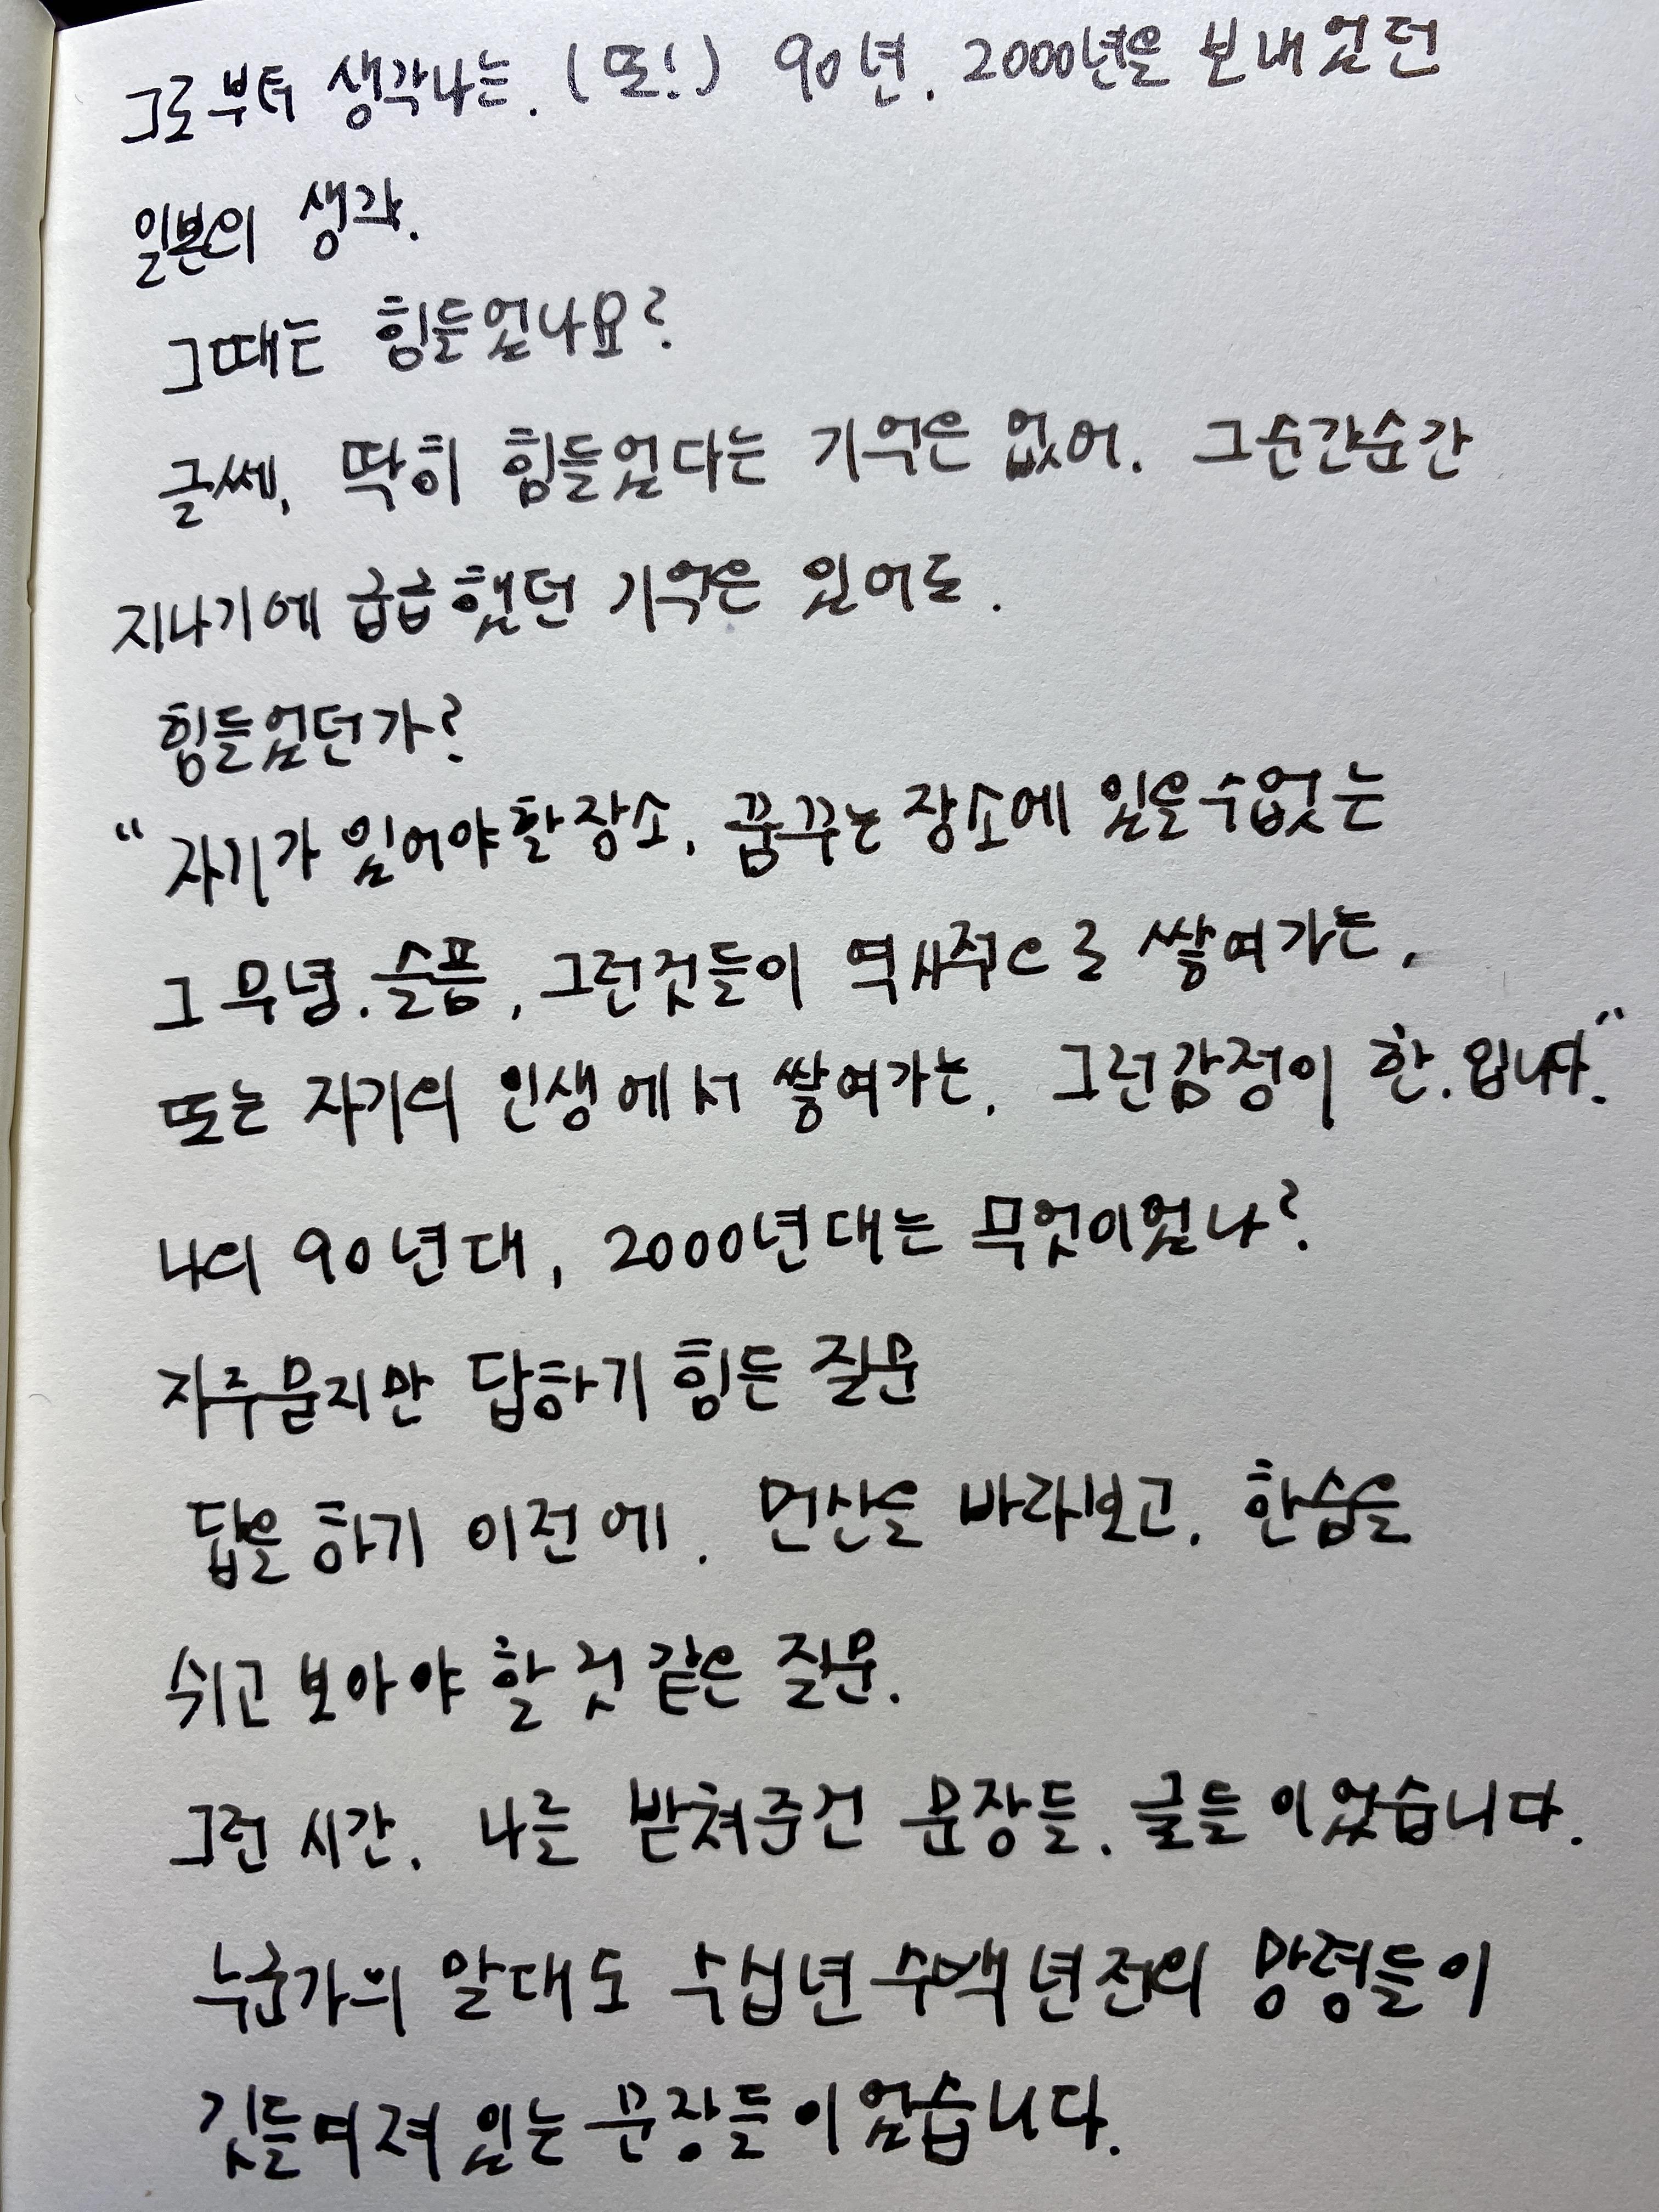 그로부터 생각나는. (또!) 90년. 2000년을 보내었던
일본의 생각.
그때는 힘들었나요?
글쎄, 딱히 힘들었다는 기억은 없어. 그순간순간
지나기에 급급했던 기억은 있어도.
힘들었던가?
"자기가 있어야할 장소, 꿈꾸는 장소에 있을수없는
그 무녕. 슬픔, 그런것들이 역사적으로 쌓여가는,
또는 자기의 인생에서 쌓여가는, 그런감정이 한. 입니다."
나의 90년대, 2000년대는 무엇이었나?
자주묻지만 답하기 힘든 질문
답을 하기 이전에. 먼산을 바라보고, 한숨을
쉬고 보아야 할 것 같은 질문.
그런 시간, 나를 받쳐준건 문장들. 글들이었습니다.
누군가의 말대로 수십년 수백년전의 망령들이
깃들여져 있는 문장들이었습니다.